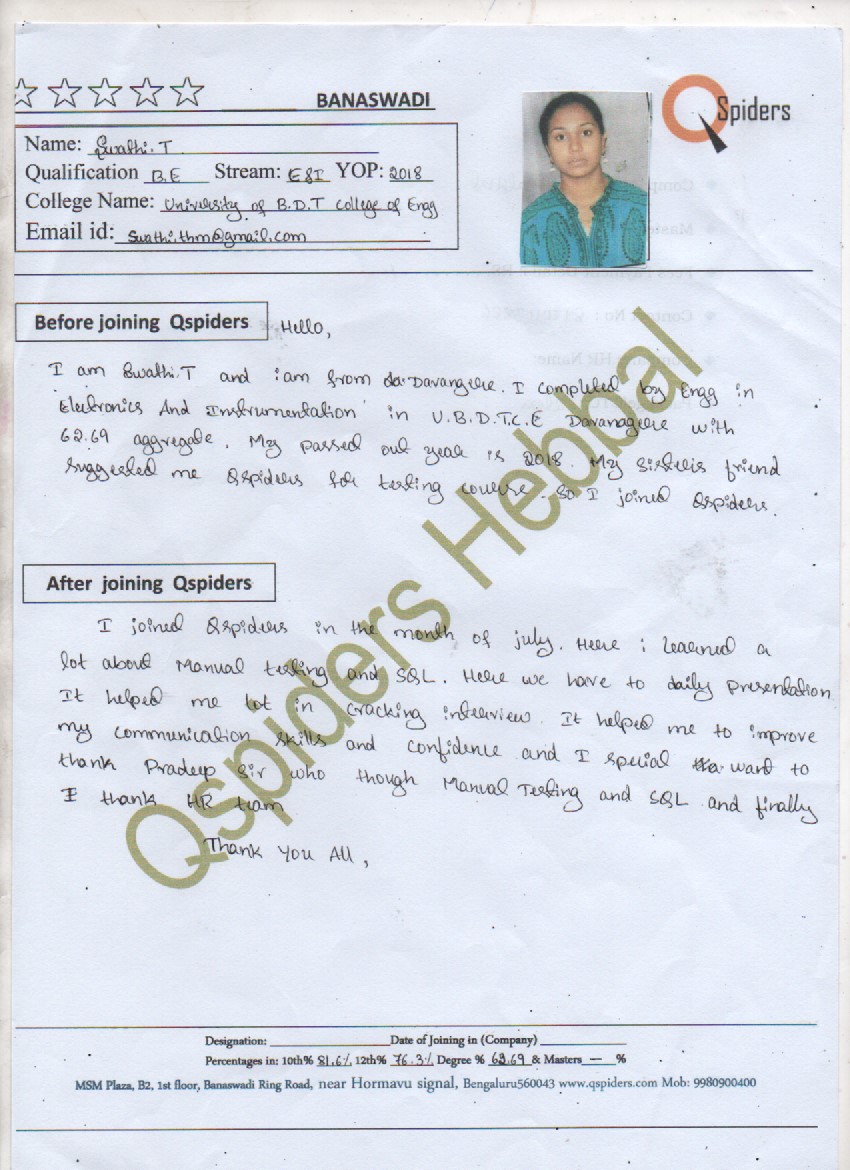 BANASWADI
Qspiders
Name: Swathi.T
Qualification B.E Stream: E&I YOP: 2018
College Name: University of B.D.T college of Engg
Email id: Swathi.thm@gmail.com
Before joining Qspiders Hello,
I am Swathi.T and i am from Davangere. I completed by Engg in
Electronics And Instrumentation in U.B.D.T.C.E Davanagere with
62.69 aggregate. My passed out year is 2018. My Sister's friend
suggested me Qspiders for testing course. So I joined Qspiders.
After joining Qspiders
I joined Qspiders in the month of july. Here i learned a
lot about Manual testing and SQL. Here we have to daily presentation
It helped me lot in cracking interview. It helped me to improve
my communication skills and confidence and I special want to
thank Pradeep Sir who though Manual Testing and SQL and finally
I thank HR team
Thank You All,
Qspiders Hebbal
Designation: Date of Joining in (Company)
Percentages in: 10th% 81.6% 12th% 76.3% Degree % 63.69 & Masters — %
MSM Plaza, B2, 1st floor, Banaswadi Ring Road, near Hormavu signal, Bengaluru560043 www.qspiders.com Mob: 9980900400